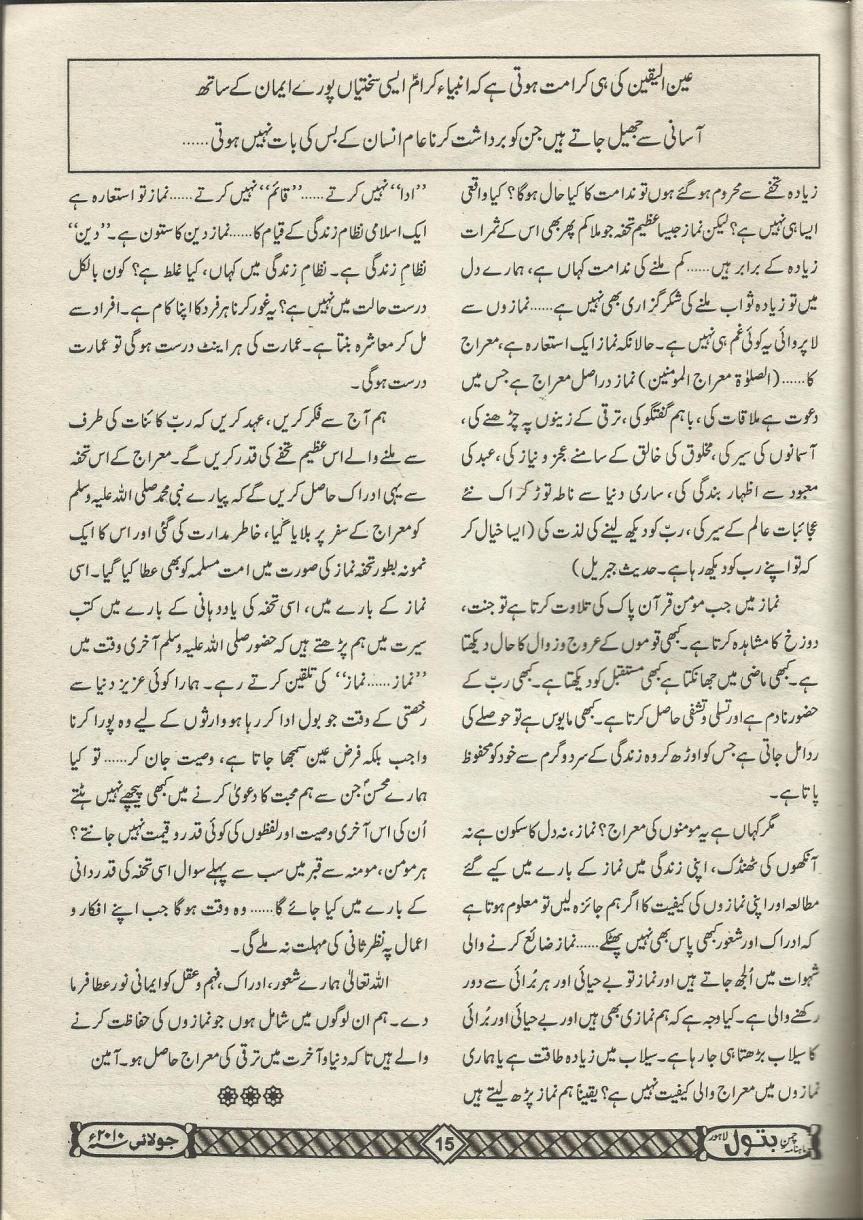 عین الیقین کی ہی کرامت ہوتی ہے کہ انبیاء کرامؑ ایسی سختیاں پورے ایمان کے ساتھ
آسانی سے جھیل جاتے ہیں جن کو برداشت کرنا عام انسان کے بس کی بات نہیں ہوتی......
زیادہ تحفے سے محروم ہو گئے ہوں تو ندامت کا کیا حال ہوگا؟ کیا واقعی
ایسا ہی نہیں ہے؟ لیکن نماز جیسا عظیم تحفہ جو ملا کم پھر بھی اس کے ثمرات
زیادہ کے برابر ہیں...... کم ملنے کی ندامت کہاں ہے، ہمارے دل
میں تو زیادہ ثواب ملنے کی شکر گزاری بھی نہیں ہے...... نمازوں سے
لاپروائی یہ کوئی غم ہی نہیں ہے۔ حالانکہ نماز ایک استعارہ ہے، معراج
کا...... (الصلوٰۃ معراج المومنین) نماز دراصل معراج ہے جس میں
دعوت ہے ملاقات کی، باہم گفتگو کی، ترقی کے زینوں پہ چڑھنے کی،
آسمانوں کی سیر کی، مخلوق کی خالق کے سامنے عجز و نیاز کی، عبد کی
معبود سے اظہار بندگی کی، ساری دنیا سے ناطہ توڑ کر اک نئے
عجائبات عالم کے سیر کی، ربّ کو دیکھ لینے کی لذت کی (ایسا خیال کر
کہ تو اپنے رب کو دیکھ رہا ہے۔ حدیث جبریل)
نماز میں جب مومن قرآن پاک کی تلاوت کرتا ہے تو جنت،
دوزخ کا مشاہدہ کرتا ہے۔ کبھی قوموں کے عروج و زوال کا حال دیکھتا
ہے۔ کبھی ماضی میں جھانکتا ہے کبھی مستقبل کو دیکھتا ہے۔ کبھی ربّ کے
حضور نادم ہے اور تسلی و تشفی حاصل کرتا ہے۔ کبھی مایوس ہے تو حوصلے کی
ردا مل جاتی ہے جس کو اوڑھ کر وہ زندگی کے سرد و گرم سے خود کو محفوظ
پاتا ہے۔
مگر کہاں ہے یہ مومنوں کی معراج؟ نماز، نہ دل کا سکون ہے نہ
آنکھوں کی ٹھنڈک، اپنی زندگی میں نماز کے بارے میں کیے گئے
مطالعہ اور اپنی نمازوں کی کیفیت کا اگر ہم جائزہ لیں تو معلوم ہوتا ہے
کہ ادراک اور شعور کبھی پاس بھی نہیں پھٹکے...... نماز ضائع کرنے والی
شہوات میں اُلجھ جاتے ہیں اور نماز تو بے حیائی اور ہر بُرائی سے دور
رکھنے والی ہے۔ کیا وجہ ہے کہ ہم نمازی بھی ہیں اور بے حیائی اور بُرائی
کا سیلاب بڑھتا ہی جا رہا ہے۔ سیلاب میں زیادہ طاقت ہے یا ہماری
نمازوں میں معراج والی کیفیت نہیں ہے؟ یقیناً ہم نماز پڑھ لیتے ہیں
”ادا“ نہیں کرتے...... ”قائم“ نہیں کرتے...... نماز تو استعارہ ہے
ایک اسلامی نظام زندگی کے قیام کا...... نماز دین کا ستون ہے۔ ”دین“
نظامِ زندگی ہے۔ نظامِ زندگی میں کہاں، کیا غلط ہے؟ کون بالکل
درست حالت میں نہیں ہے؟ یہ غور کرنا ہر فرد کا اپنا کام ہے۔ افراد سے
مل کر معاشرہ بنتا ہے۔ عمارت کی ہر اینٹ درست ہوگی تو عمارت
درست ہوگی۔
ہم آج سے فکر کریں، عہد کریں کہ ربّ کائنات کی طرف
سے ملنے والے اس عظیم تحفے کی قدر کریں گے۔ معراج کے اس تحفہ
سے یہی ادراک حاصل کریں گے کہ پیارے نبی محمد صلی اللہ علیہ وسلم
کو معراج کے سفر پر بلایا گیا، خاطر مدارت کی گئی اور اس کا ایک
نمونہ بطور تحفہ نماز کی صورت میں امت مسلمہ کو بھی عطا کیا گیا۔ اسی
نماز کے بارے میں، اسی تحفہ کی یاددہانی کے بارے میں کتب
سیرت میں ہم پڑھتے ہیں کہ حضور صلی اللہ علیہ وسلم آخری وقت میں
”نماز...... نماز“ کی تلقین کرتے رہے۔ ہمارا کوئی عزیز دنیا سے
رخصتی کے وقت جو بول ادا کر رہا ہو وارثوں کے لیے وہ پورا کرنا
واجب بلکہ فرض عین سمجھا جاتا ہے، وصیت جان کر...... تو کیا
ہمارے محسنؐ جن سے ہم محبت کا دعویٰ کرنے میں کبھی پیچھے نہیں ہٹتے
اُن کی اس آخری وصیت اور لفظوں کی کوئی قدر و قیمت نہیں جانتے؟
ہر مومن، مومنہ سے قبر میں سب سے پہلے سوال اسی تحفہ کی قدردانی
کے بارے میں کیا جائے گا...... وہ وقت ہوگا جب اپنے افکار و
اعمال پہ نظر ثانی کی مہلت نہ ملے گی۔
اللہ تعالیٰ ہمارے شعور، ادراک، فہم و عقل کو ایمانی نور عطا فرما
دے۔ ہم ان لوگوں میں شامل ہوں جو نمازوں کی حفاظت کرنے
والے ہیں تاکہ دنیا و آخرت میں ترقی کی معراج حاصل ہو۔ آمین
ماہنامہ چمن بتول لاہور
15
جولائی ۲۰۱۰ء